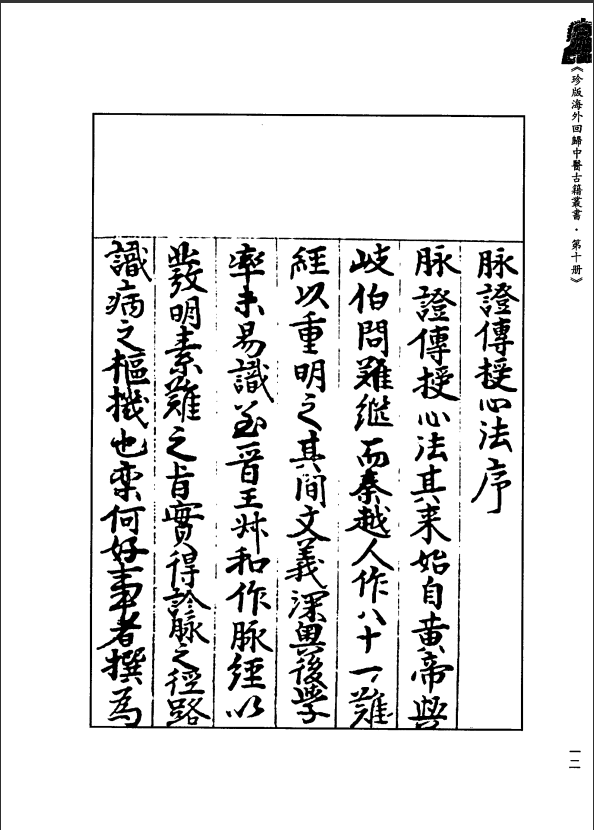 《珍版海外回歸中醫古籍叢書·第十册》
脉證傳授心法序
脉證傳授心法其来始自黄帝與
岐伯問難継而秦越人作八十一難
經以重明之其间文義深奥後学
率未易識至晋王叔和作脉經以
發明素難之旨實得診脉之徑路
識病之樞機也柰何好事者撰為
一二